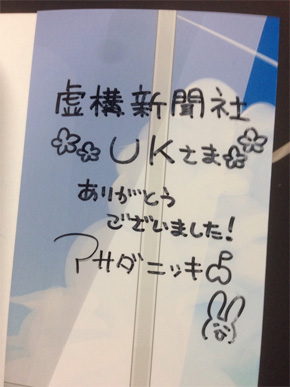 虚構新聞社
UKさま
ありがとう
ございました!
アサダニッキ